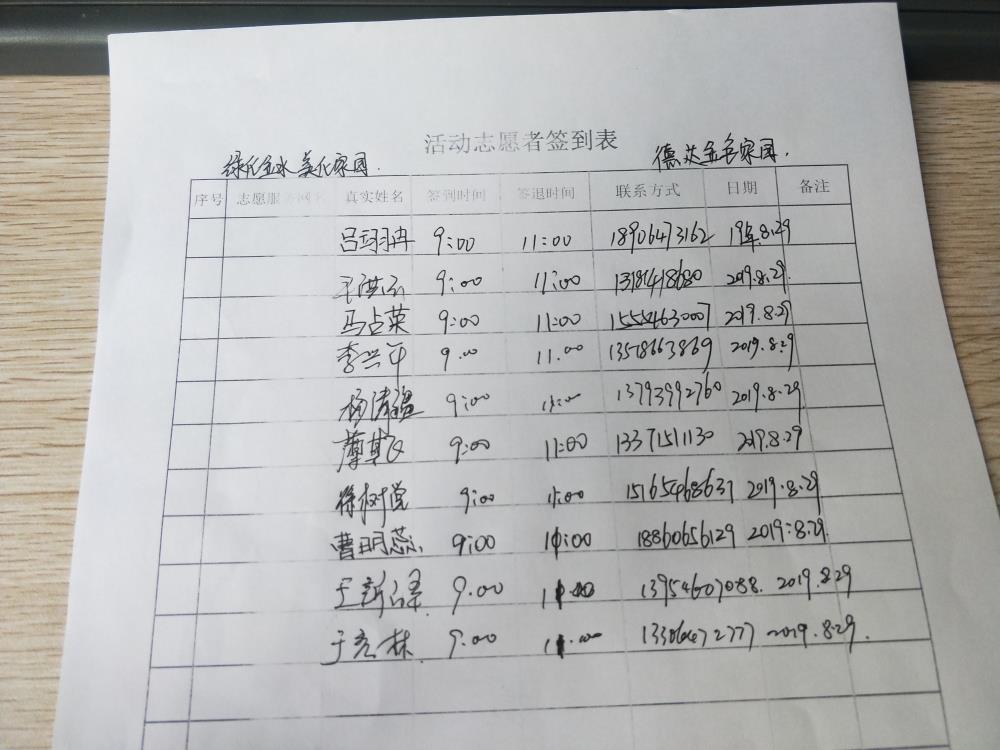 活动志愿者签到表
绿化金水 美化家园. 德茨金色家园.
序号 志愿服 真实姓名 签到时间 签退时间 联系方式 日期 备注
吕珝冉 9:00 11:00 18906473162 19年.8.29
王洪 9:00 11:00 2019.8.29
马占荣 9:00 11:00 15554630007 2019.8.29
李兴年 9.00 11.00 13578663869 2019.8.29
杨清 9:00 11:00 13793992760 2019.8.29
9:00 11:00 13371511130 2019.8.29
徐树党 9:00 11:00 15165468637 2019.8.29
曹明蕊 9:00 11:00 18860656129 2019.8.29.
王新 9.00 11.00 13954607088. 2019.8.29
于克林. 9:00 11.00 2019.8.29.